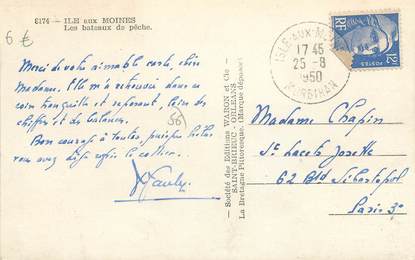 8174 - ILE aux MOINES
Les bateaux de pêche.
6 €
56
Merci de votre aimable carte, chère
Madame. Elle m'a retrouvé dans ce
coin tranquille et reposant, loin des
chiffres et des balances.
Bon courage à toutes, puisque
vous avez déjà repris le collier.
Société des Editions WARON et Cie
SAINT-BRIEUC - ORLEANS
La Bretagne Pittoresque. (Marque déposée)
ISLE-AUX-MOINES
17 45
25 - 8
1950
MORBIHAN
RF
12F
POSTES
Madame Chapin
62 Bld Sébastopol
Paris 3e